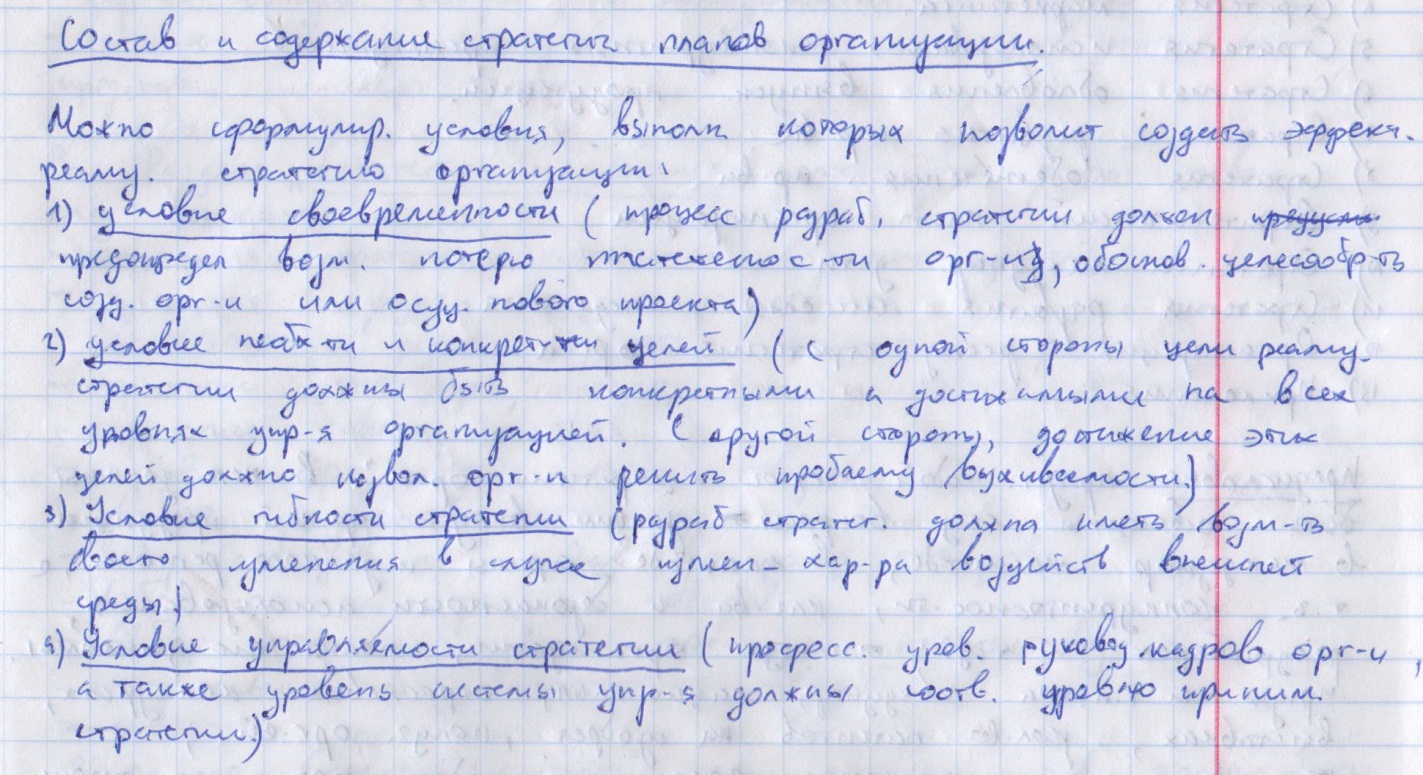 Состав и содержание стратегич планов организации.
Можно сформулир. условия, выполн. которых позволит создать эффект.
реализ. стратегию организации:
1) условие своевременности ( процесс разраб. стратегии должен
предопредел возм. потерю орг-и, обоснов. целесообр-ть
созд. орг-и или осущ. нового проекта)
2) условие необх-ти и конкретн целей ( С одной стороны цели реализ.
стратегии должны быть конкретными и достижимыми на всех
уровнях упр-я организацией. С другой стороны, достижение этих
целей должно позвол. орг-и решить проблему выживаемости.)
3) Условие гибкости стратегии (разраб стратег. должна иметь возм-ть
своего изменения в случае измен- хар-ра воздейств внешней
среды)
4) Условие управляемости стратегии ( професс. уров. руковод кадров орг-и,
а также уровень системы упр-я должны соотв. уровню приним.
стратегии.)